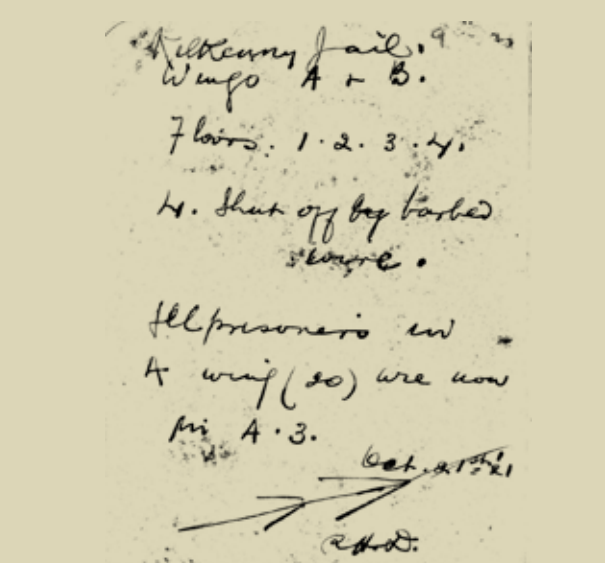 Kilkenny Jail.
Wings A & B.
Floors. 1. 2. 3. 4.
4. Shut off by barbed
wire.
All prisoners in
A wing (20) are now
in A.3.
Oct. 21st '21